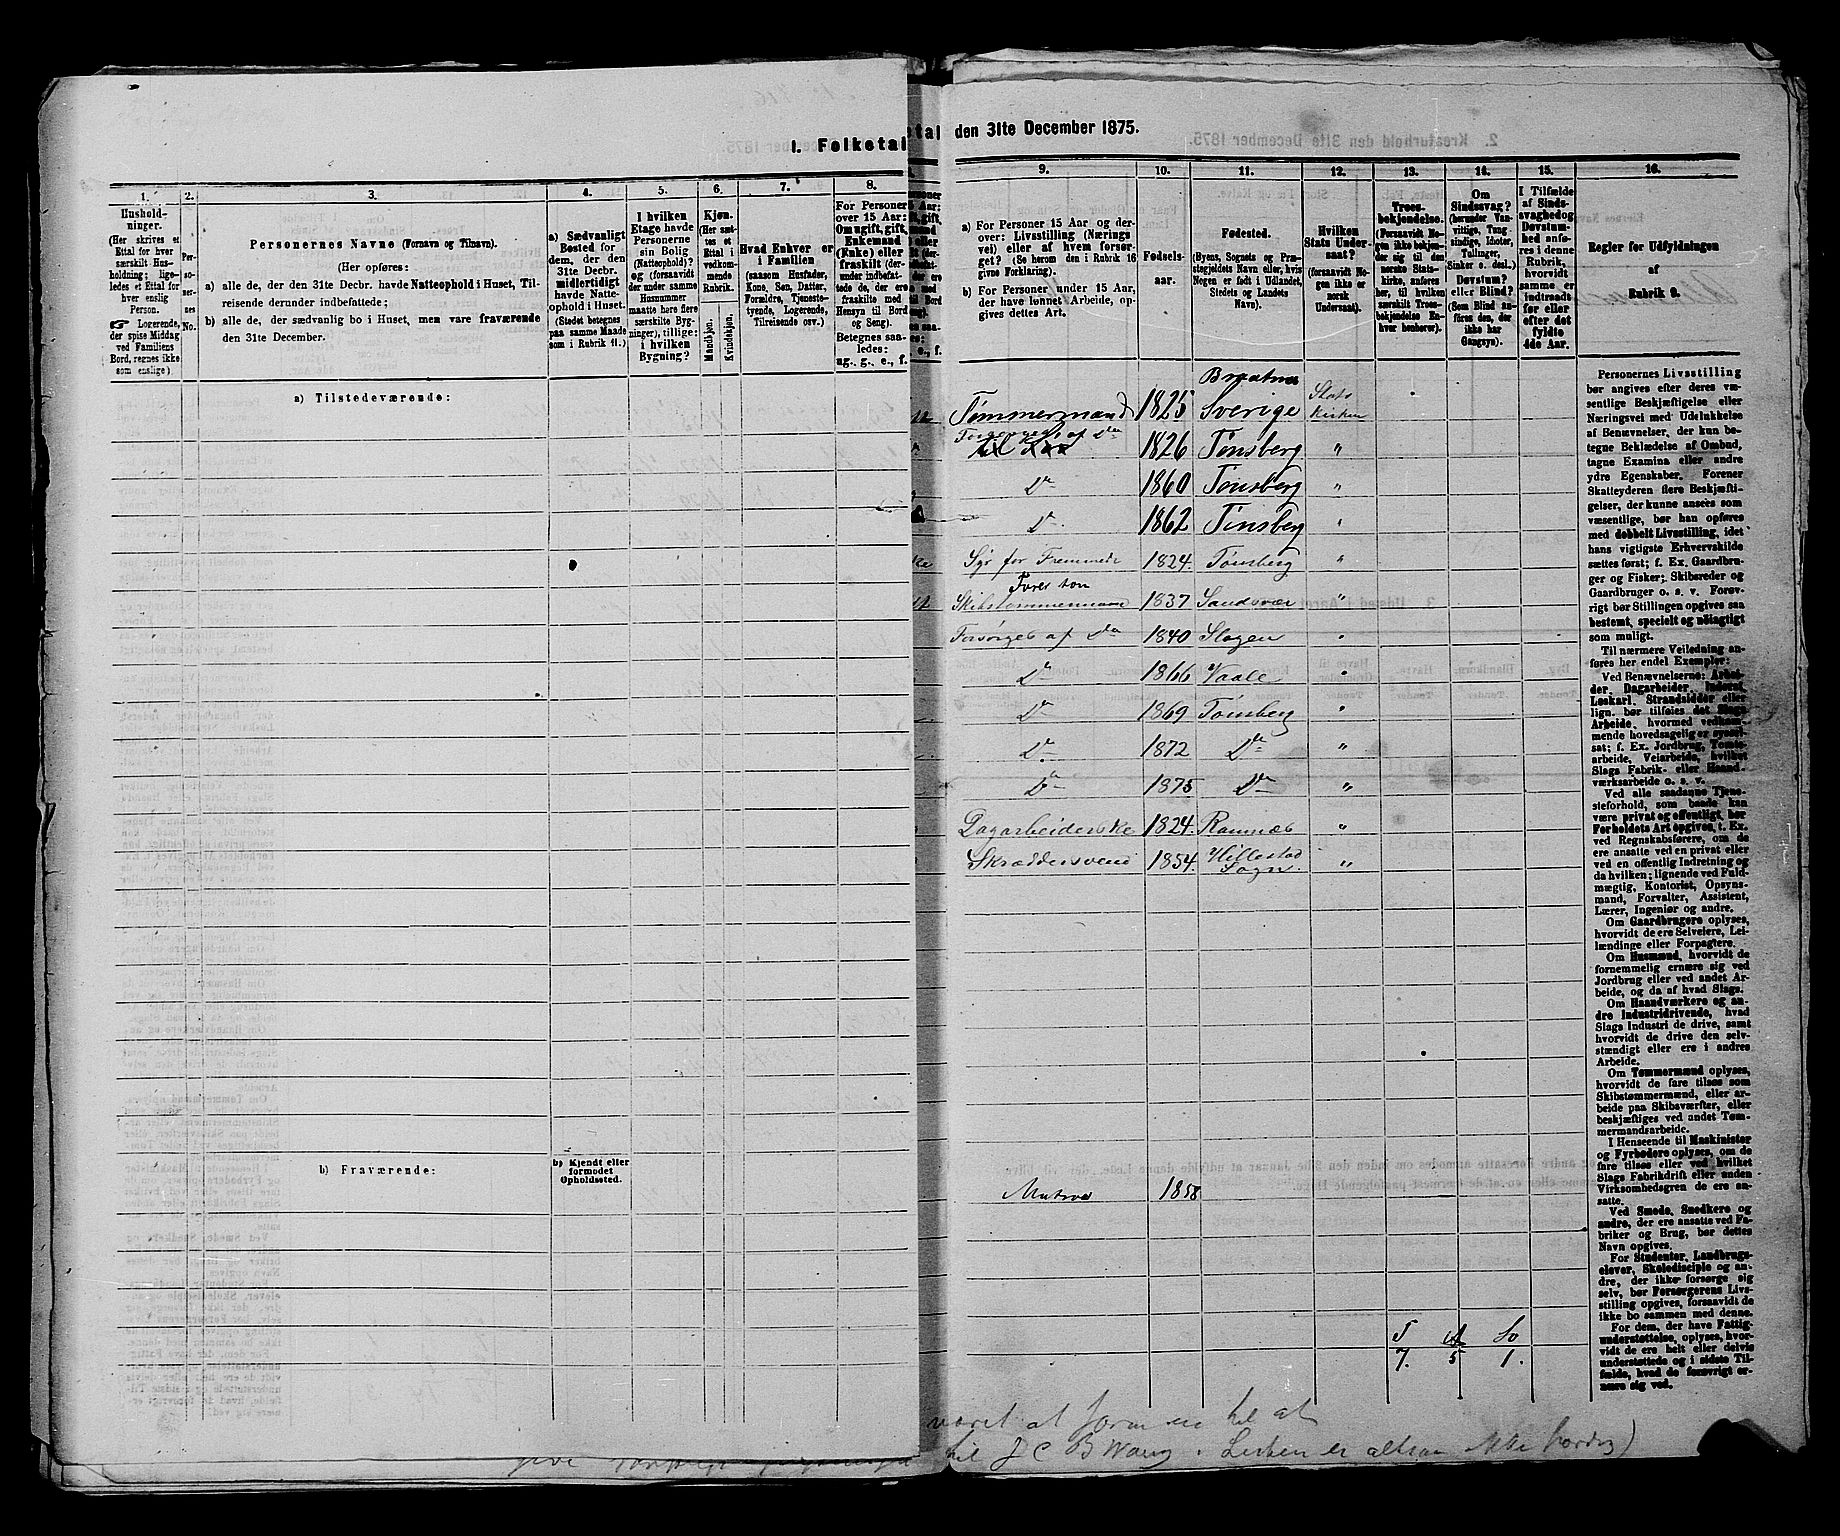 I. Folketal
den 31te December 1875.
1.
2.
3.
4.
5.
6.
7.
8.
Hushold-
ninger.
(Her skrives et
Ettal for hver
særskilt Hus-
holdning; lige-
ledes et Ettal
for hver
enslig
Person.
☞ Logerende,
der spise Middag
ved Familiens
Bord, regnes ikke
som enslige)
Per-
so-
ner-
nes
No.
Personernes Navne (Fornavn og Tilnavn).
(Her opføres:
a) alle de, der den 31te Decbr. havde Natteophold i Huset, Til-
reisende derunder indbefattede;
b) alle de, der sædvanlig bo i Huset, men vare fraværende
den 31te December.
a) Sædvanligt
Bosted for
dem, der den
31te Decbr.
midlertidigt
havde Natte-
ophold i Huset.
(Stedet betegnes
paa samme Maade
som i Rubrik 11.)
I hvilken
Etage havde
Personerne
sin Bolig
(Natteophold)?
og (forsaavidt
der under samme
Husnummer
maatte høre flere
særskilte Byg-
ninger), tillige:
i hvilken
Bygning?
Kjøn.
(Her sæt-
tes et
Ettal i
vedkom-
mende
Rubrik.
Mandkjøn.
Kvindekjøn.
Hvad Enhver er
i Familien
(saasom Husfader,
Kone, Søn, Datter,
Forældre, Tjeneste-
tyende, Logerende,
Tilreisende osv.)
For Personer
over 15 Aar:
Om ugift, gift,
Enkemand
(Enke) eller
fraskilt (der-
under indbefat-
tede de, der ere
fraskilte med
Hensyn til Bord
og Seng).
Betegnes saa-
ledes:
ug. g. e., f.
a) Tilstedeværende:
b) Fraværende:
b) Kjendt eller
formodet
Opholdssted.
9.
10.
11.
12.
13.
14.
15.
16.
a) For Personer 15 Aar og der-
over: Livsstilling (Nærings
vei) eller af hvem forsør-
get? (Se herom den i Rubrik 16
givne Forklaring).
b) For Personer under 15 Aar,
der have lønnet Arbeide, op-
gives dettes Art.
Fødsels-
aar.
Fødested.
(Byens, Sognets og Præ-
stegjeldets Navn eller, hvis
Nogen er født i Udlandet,
Stedets og Landets
Navn).
Hvilken
Stats Under-
saat?
(forsaavidt No-
gen ikke er
norsk
Undersaat).
Troes-
bekjendelse.
(Forsaavidt No-
gen ikke bekjen-
der sig til den
norske Stats-
kirke, anføres
her, til hvilken
særskilt Troes-
bekjendelse En-
hver henhører).
Om
Sindssvag?
(herunder Van-
vittige, Tung-
sindige, Idioter,
Tullinger,
Sinker o. desl.)
Døvstum?
eller Blind?
(Som Blind an-
føres den, der
ikke har
Gangsyn).
I Tilfælde
af Sinds-
svaghed og
Døvstum-
hed anfø-
res i denne
Rubrik,
hvorvidt
samme er
indtraadt
før eller
efter det
fyldte
4de Aar.
Regler for Udfyldningen
af
Rubrik 9.
Tømmermand 1825 Sverige Stats Kirken
Forsørges af Do 1826 Tønsberg "
Do 1860 Tønsberg "
Do 1862 Tønsberg "
Syr for Fremmede 1824 Tønsberg "
Skibstømmermann 1837 Sandsvær "
Forsørges af Do 1840 Slagen "
Do 1866 Vaale "
Do 1869 Tønsberg "
Do 1872 Do "
Do 1875 Do "
Dagarbeiderske 1824 Ramnæs "
Skræddersvend 1854 Hillestad Sogn "
Matros 1858
7. 5 1.
Personernes Livsstilling
bør angives efter deres væ-
sentlige Beskjæftigelse eller
Næringsvei med Udelukkelse
af Benævnelser, der kun be-
tegne Beklædelse af Ombud,
tagne Examina eller andre
ydre Egenskaber. Forener
Skatteyderen flere Beskjæfti-
gelser, der kunne ansées som
væsentlige, bør han opføres
med dobbelt Livsstilling, idet
hans vigtigste Erhvervskilde
sættes først; f. Ex. Gaardbru-
ger og Fisker; Skibsreder og
Gaardbruger o. s. v. Forøv-
rigt bør Stillingen opgives saa
bestemt, specielt og nøiagtigt
som muligt.
Til nærmere Veiledning an-
føres her endel Exempler:
Ved Benævnelserne: Arbei-
der, Dagarbeider, Inderst,
Løskarl, Strandsidder eller
lign. bør tilføies det Slags
Arbeide, hvormed vedkom-
mende hovedsagelig er syssel-
sat; f. Ex. Jordbrug, Tomte-
arbeide, Veiarbeide, hvilket
Slags Fabrik- eller Haand-
værksarbeide o. s. v.
Ved alle saadanne Tjene-
steforhold, som baade kan
være privat og offentligt, bør
Forholdets Art opgives, t. Ex.
ved Regnskabsførere, om de
ere ansatte ved en privat eller
ved en offentlig Indretning og
da hvilken; lignende ved Fuld-
mægtig, Kontorist, Opsyns-
mand, Forvalter, Assistent,
Lærer, Ingeniør og andre.
Om Gaardbrugere oplyses,
hvorvidt de ere Selveiere, Lei-
lændinge eller Forpagtere.
Om Husmænd, hvorvidt de
fornemmelig ernære sig ved
Jordbrug eller ved andet Ar-
beide, og da af hvad Slags.
Om Haandværkere og an-
dre Industridrivende, hvad
Slags Industri de drive, samt
hvorvidt de drive den selv-
stændigt eller ere i andres
Arbeide.
Om Tømmermænd oplyses,
hvorvidt de fare tilsøs som
Skibstømmermænd, eller ar-
beide paa Skibsværfter, eller
beskjæftiges ved andet Tøm-
mermandsarbeide.
I Henseende til Maskinister
og Fyrbødere oplyses, om de
fare tilsøs eller ved hvilket
Slags Fabrikdrift eller anden
Virksomhedsgren de ere an-
satte.
Ved Smede, Snedkere og
andre, der ere ansatte ved Fa-
briker og Brug, bør dettes
Navn opgives.
For Studenter, Landbrugs-
elever, Skoledisciple og an-
dre, der ikke forsørge sig
selv, bør Forsørgerens Livs-
stilling opgives, forsaavidt de
ikke bo sammen med denne.
For dem, der have Fattig-
understøttelse, oplyses, hvor-
vidt de ere helt eller delvis
understøttede og i sidste Til-
fælde, hvad de forøvrigt er-
nære sig ved.
været at til at
til J C B Wang. Listen er altsaa ikke